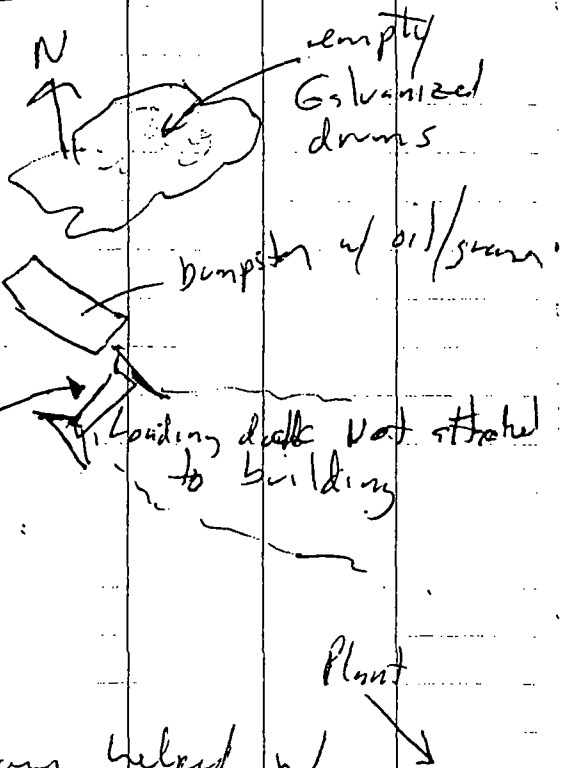 N
empty
Galvanized
drums
Dumpster w/ oil/grease
Loading dock Not attached
to building
Plant
helped w/